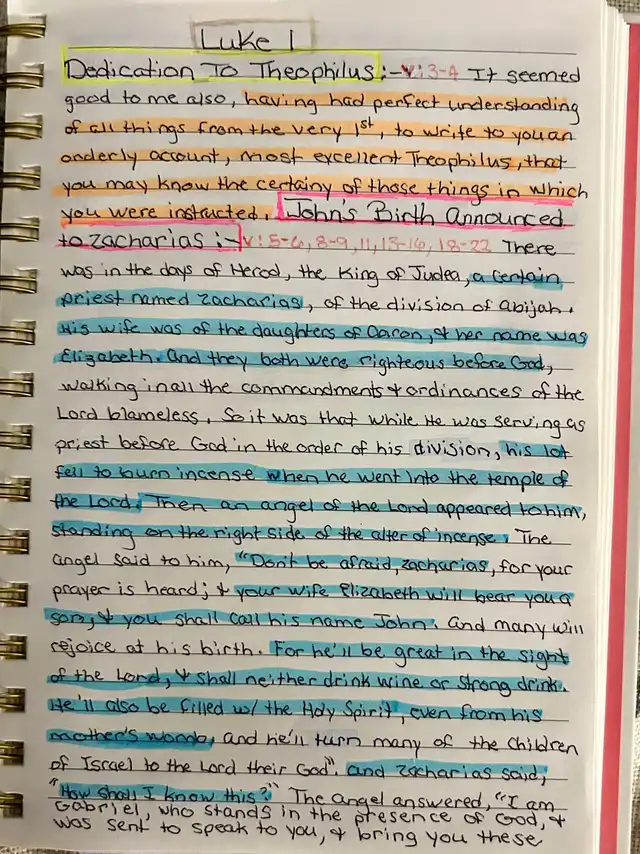 Luke 1
Dedication To Theophilus:-v:3-4 It seemed
good to me also, having had perfect understanding
of all things from the very 1st, to write to you an
orderly account, most excellent Theophilus, that
you may know the certainy of those things in which
you were instructed. John's Birth Announced
to Zacharias:-v:5-6, 8-9, 11, 13-16, 18-22 There
was in the days of Herod, the King of Judea, a certain
priest named Zacharias, of the division of Abijah.
His wife was of the daughters of Aaron, & her name was
Elizabeth. And they both were righteous before God,
walking in all the commandments & ordinances of the
Lord blameless. So it was that while He was serving as
priest before God in the order of his division, his lot
fell to burn incense when he went into the temple of
the Lord. Then an angel of the Lord appeared to him,
standing on the right side of the alter of incense. The
angel said to him, "Don't be afraid, Zacharias, for your
prayer is heard; & your wife Elizabeth will bear you a
son, & you shall call his name John. And many will
rejoice at his birth. For he'll be great in the sight
of the Lord, & shall neither drink wine or strong drink.
He'll also be filled w/ the Holy Spirit, even from his
mother's womb, and he'll turn many of the children
of Israel to the Lord their God". And Zacharias said,
"How shall I know this?" The angel answered, "I am
Gabriel, who stands in the presence of God, &
was sent to speak to you, & bring you these